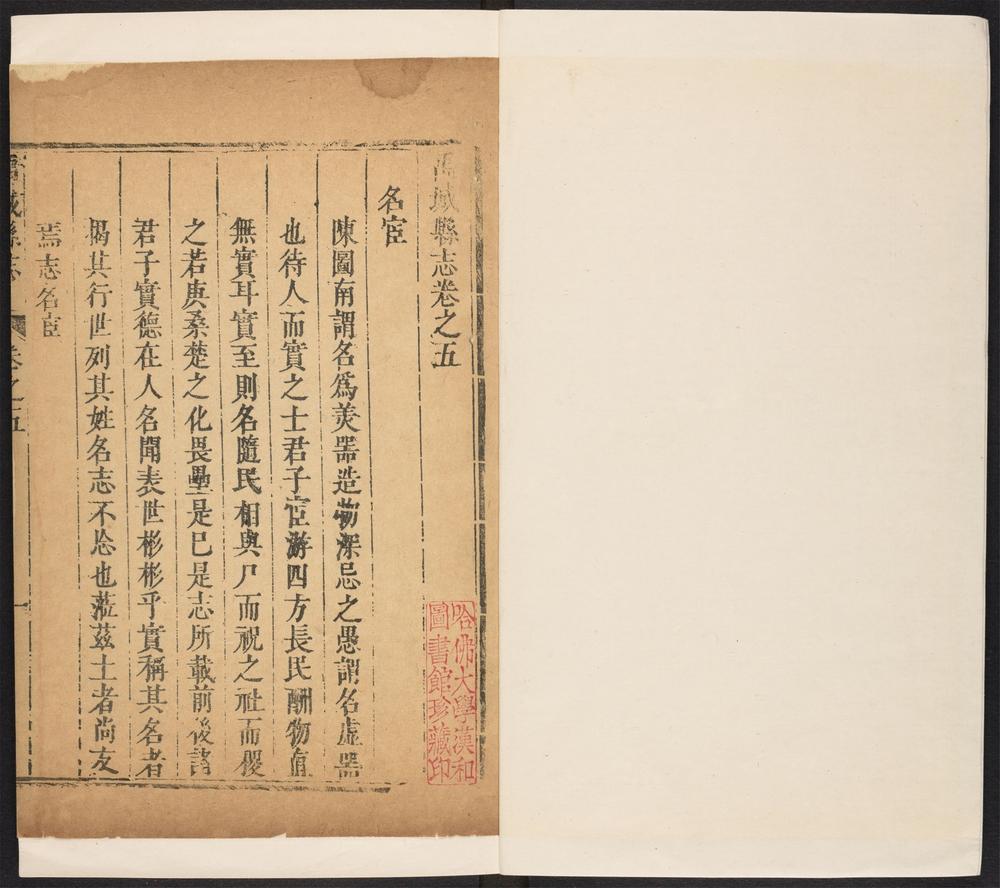 禹城縣志卷之五
名宦
陳圖南謂名爲美器造物深忌之愚謂名虛器
也待人而實之士君子宦游四方長民酬物患
無實耳實至則名隨民相與尸而祝之社而稷
之若庚桑楚之化畏壘是巳是志所載前後諸
君子實德在人名聞表世彬彬乎實稱其名者
揭其行世列其姓名志不忘也蒞茲土者尚友
焉志名宦
城縣志
卷之五
一
哈佛大學漢和
圖書館珍藏印